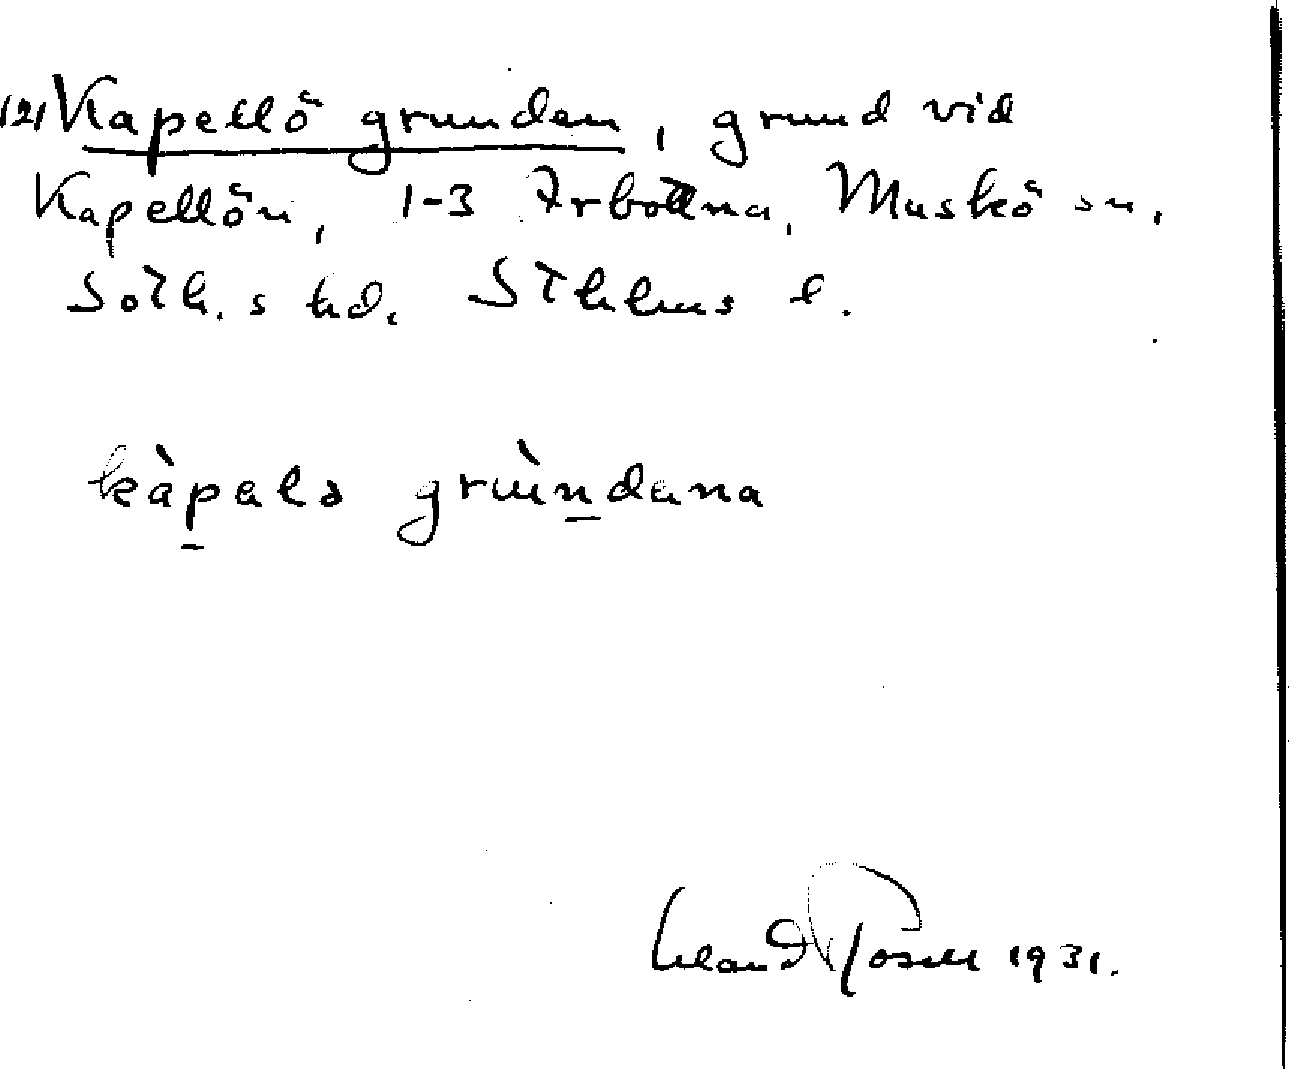 (2) Kapellögrunden, grund vid
Kapellön, 1-3 Arbottna, Muskö sn.
Soth.s hd. Sthlms l.
kàpalə grùndana
1931.